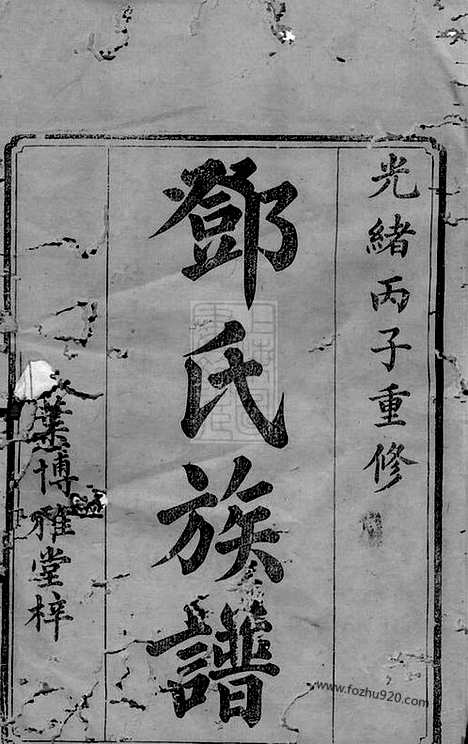 光緒丙子重修
鄧氏族譜
葉博雅堂梓
www.fozhu920.com